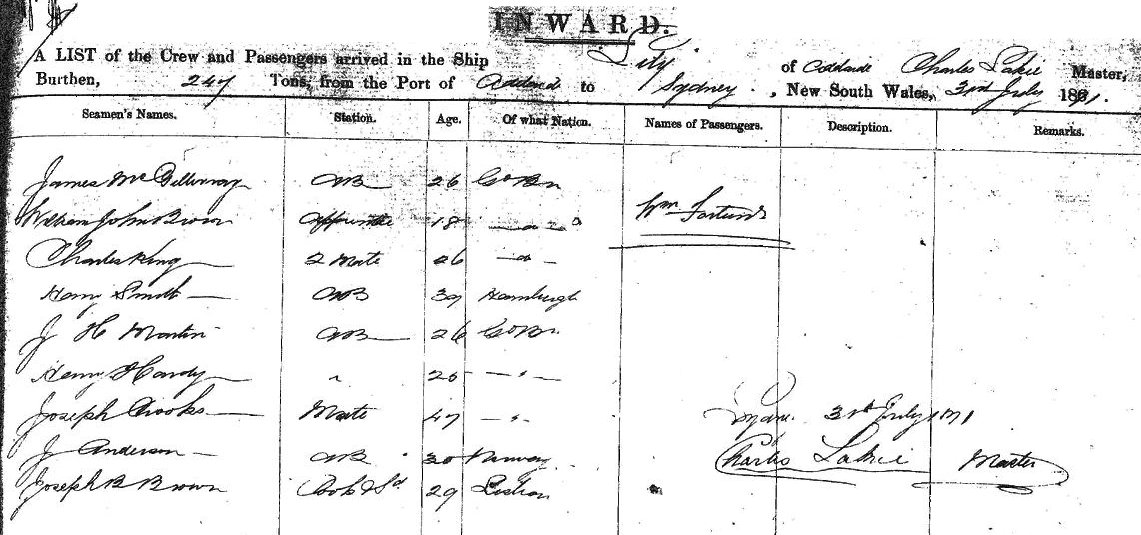 INWARD.
A LIST of the Crew and Passengers arrived in the Ship Lily of Adelaide Charles Lakie Master,
Burthen, 247 Tons, from the Port of Adelaide to Sydney, New South Wales, 3rd July 1871.
Seamen's Names. Station. Age. Of what Nation. Names of Passengers. Description. Remarks.
James Mc AB 26 Gt Bn
William John Brown Apprentice 18 — do — Wm
Charles King 2 Mate 26 — do —
Henry Smith AB 39 Hamburgh
J H Martin AB 26 Gt Bn
Henry Hardy " — " —
Joseph Crooks Mate 47 — "
J Anderson AB 30 Norway
Joseph B Brown Cook & Sd 29 Lisbon
3rd July 1871
Charles Lakie Master